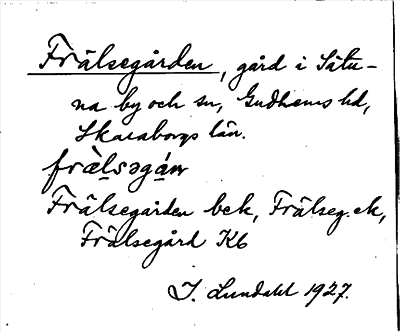 Frälsegården, gård i Sätu-
na by och sn, Gudhems hd,
Skaraborgs län.
frälsəgán
Frälsegården bek, Frälseg. ek,
Frälsegård Kb
I. Lundahl 1927.